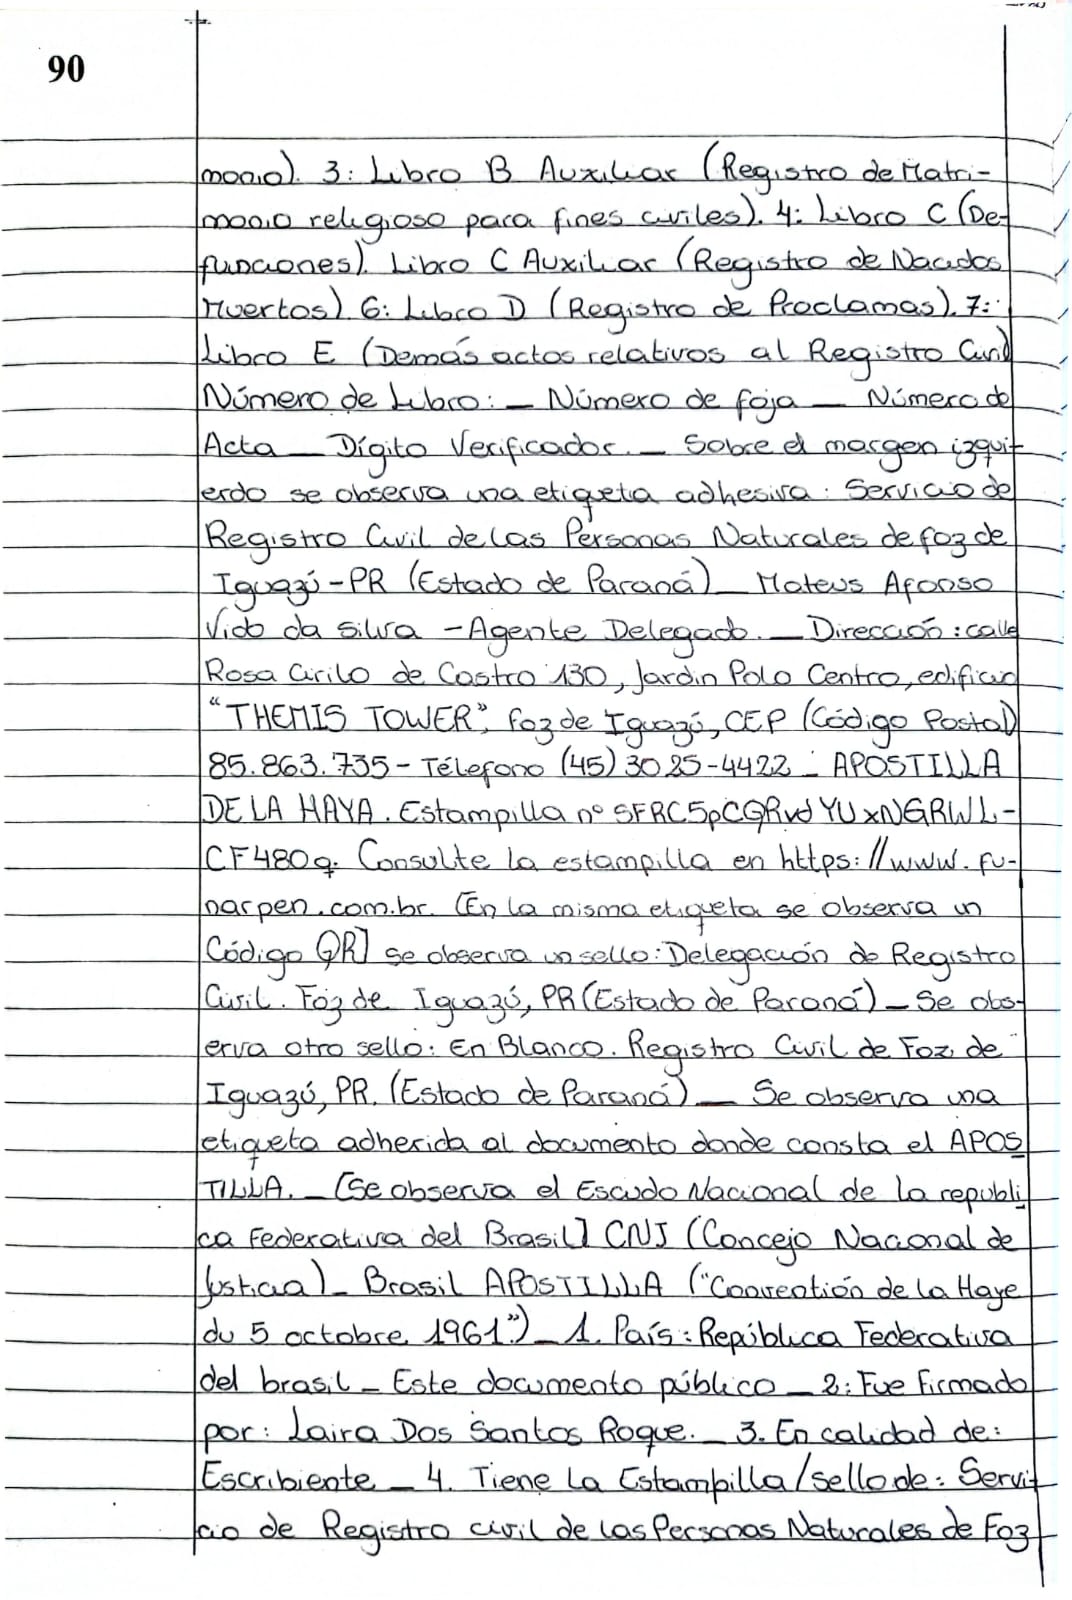 90
monio). 3: Libro B Auxiliar (Registro de Matri-
monio religioso para fines civiles). 4: Libro C (De-
funciones). Libro C Auxiliar (Registro de Nacidos
Muertos). 6: Libro D (Registro de Proclamas). 7:
Libro E (Demás actos relativos al Registro Civil
Número de Libro: — Número de foja — Número de
Acta — Dígito Verificador. — Sobre el margen izqui-
erdo se observa una etiqueta adhesiva: Servicio de
Registro Civil de las Personas Naturales de foz de
Iguazú-PR (Estado de Paraná) — Mateus Afonso
Vido da silva - Agente Delegado. — Dirección: calle
Rosa Cirilo de Castro 130, Jardin Polo Centro, edificio
"THEMIS TOWER", foz de Iguazú, CEP (Código Postal)
85.863.735- Télefono (45) 3025-4422 - APOSTILLA
DE LA HAYA. Estampilla nº SFRC5pCQRvdYUxNGRWL-
CF480q. Consulte la estampilla en https://www.fu-
narpen.com.br. [En la misma etiqueta se observa un
Código QR] se observa un sello: Delegación de Registro
Civil. Foz de Iguazú, PR (Estado de Paraná) — Se obs-
erva otro sello: En Blanco. Registro Civil de Foz de
Iguazú, PR. (Estado de Paraná) — Se observa una
etiqueta adherida al documento donde consta el APOS
TILLA. — [Se observa el Escudo Nacional de la republi
ca Federativa del Brasil] CNJ (Concejo Nacional de
Justicia) - Brasil APOSTILLA ("Convention de la Haye
du 5 octobre 1961") — 1. País: República Federativa
del brasil - Este documento público — 2: Fue firmado
por: Laira Dos Santos Roque. — 3. En calidad de:
Escribiente — 4. Tiene la Estampilla/sello de: Servi-
cio de Registro civil de las Personas Naturales de Foz